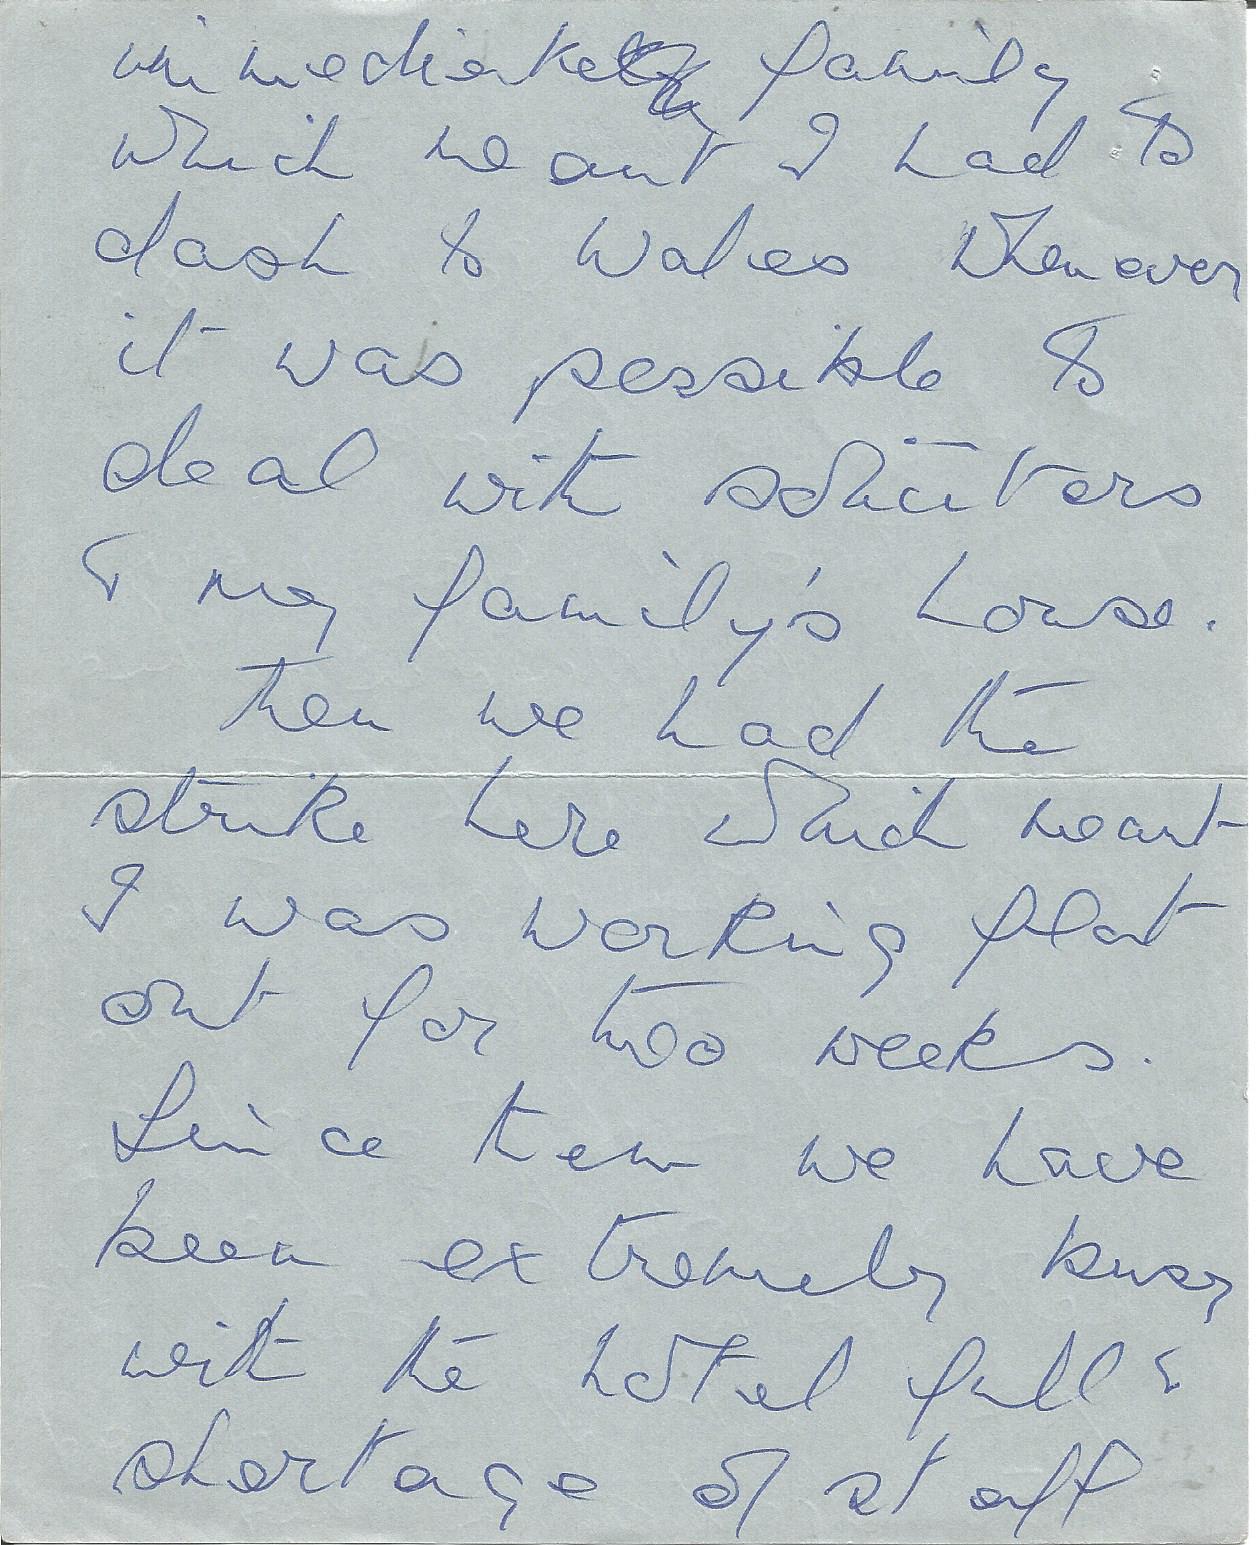 immediate family
which meant I had to
dash to Wales whenever
it was possible to
deal with solicitors
& my family's house.
Then we had the
strike here which meant
I was working flat
out for two weeks.
Since then we have
been extremely busy
with the hotel full &
shortage of staff